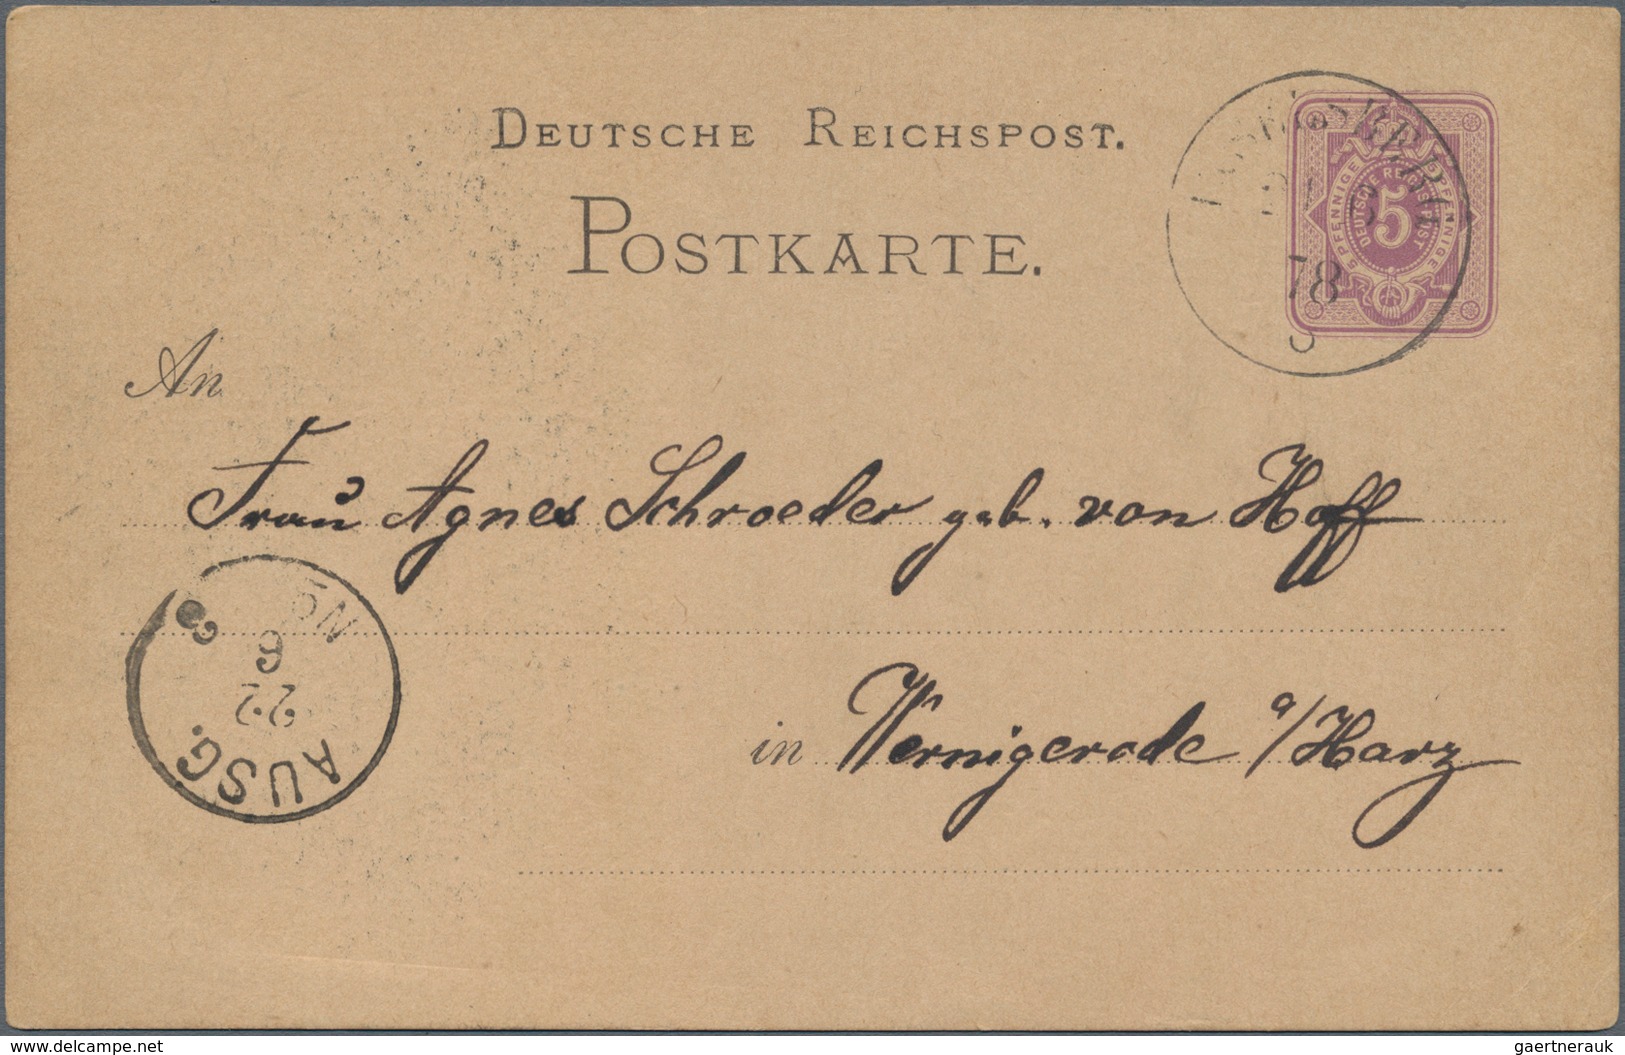 DEUTSCHE REICHSPOST.
POSTKARTE.
5 PFENNIGE
DEUTSCHE REICHSPOST
5
5 PFENNIGE
78
An
Frau Agnes Schroeder geb. von Hoff
in Wernigerode a/Harz
AUSG.
22
6
3
www.delcampe.net
gaertnerauk